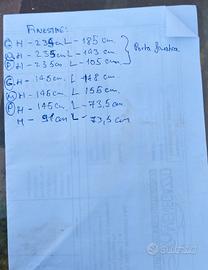 FINESTRE:
G H - 235cm L - 185 cm.
M H - 235cm L - 143 cm.
P H - 235cm L - 105 cm.
Porta finestra
G H - 145 cm. L - 148 cm.
M H - 145 cm. L - 155 cm.
P H - 145 cm L - 73,5 cm.
H - 91 cm L - 73,5 cm
subito